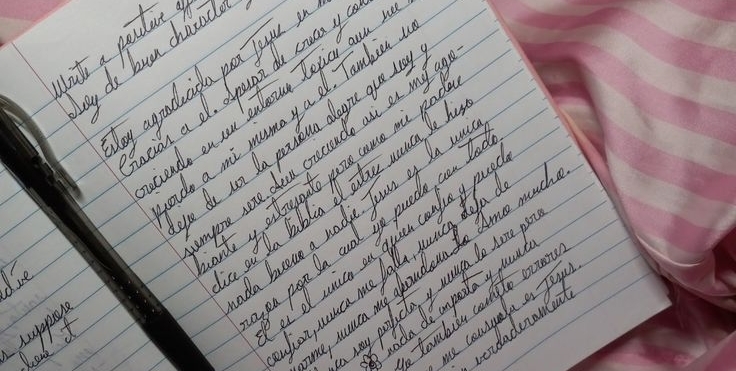 Write a positive
Soy de buen character
Estoy agradecida por Jesus en
Gracias a el. Apesar de creser y
creciendo en un entorno toxico aun
perdo a mi mismo y a el. Tambien no
dejo de ser la persona alegre que soy y
siempre sere. Leer creciendo asi es muy ago-
biante y estresante pero como mi padre
dice en la biblia el estres nunca le hiso
nada bueno a nadie. Jesus es la unica
razon por la cual yo puedo con todo
El es el unico en quien confio y puedo
confiar, nunca me falla, nunca deja de
nunca me abandona. Lo Amo mucho.
soy perfecta y nunca lo sere pero
nada de importa y nunca
Yo tambien cometo errores
me consuela es Jesus.
verdaderamente
suppose